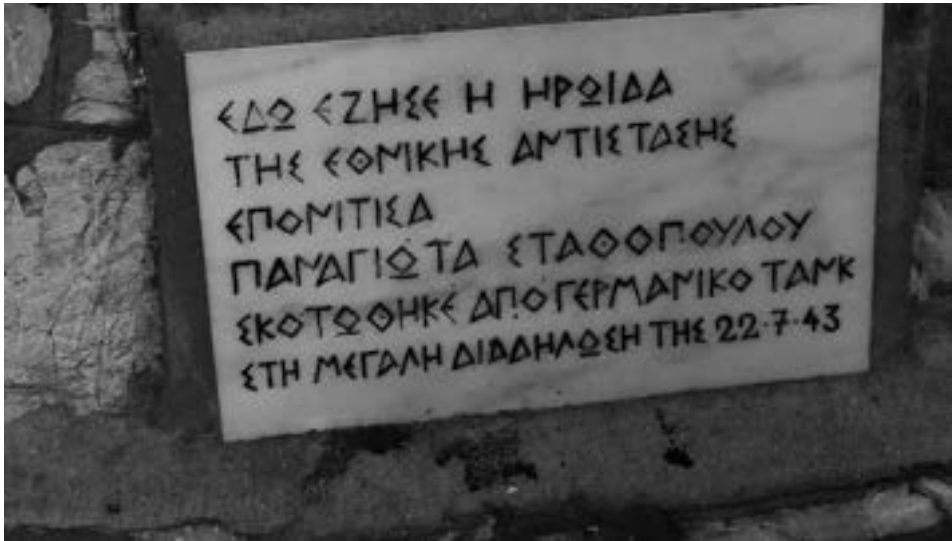 ΕΔΩ ΕΖΗΣΕ Η ΗΡΩΙΔΑ
ΤΗΣ ΕΘΝΙΚΗΣ ΑΝΤΙΣΤΑΣΗΣ
ΕΠΟΝΙΤΙΣΑ
ΠΑΝΑΓΙΩΤΑ ΣΤΑΘΟΠΟΥΛΟΥ
ΣΚΟΤΩΘΗΚΕ ΑΠΟ ΓΕΡΜΑΝΙΚΟ ΤΑΝΚ
ΣΤΗ ΜΕΓΑΛΗ ΔΙΑΔΗΛΩΣΗ ΤΗΣ 22·7·43